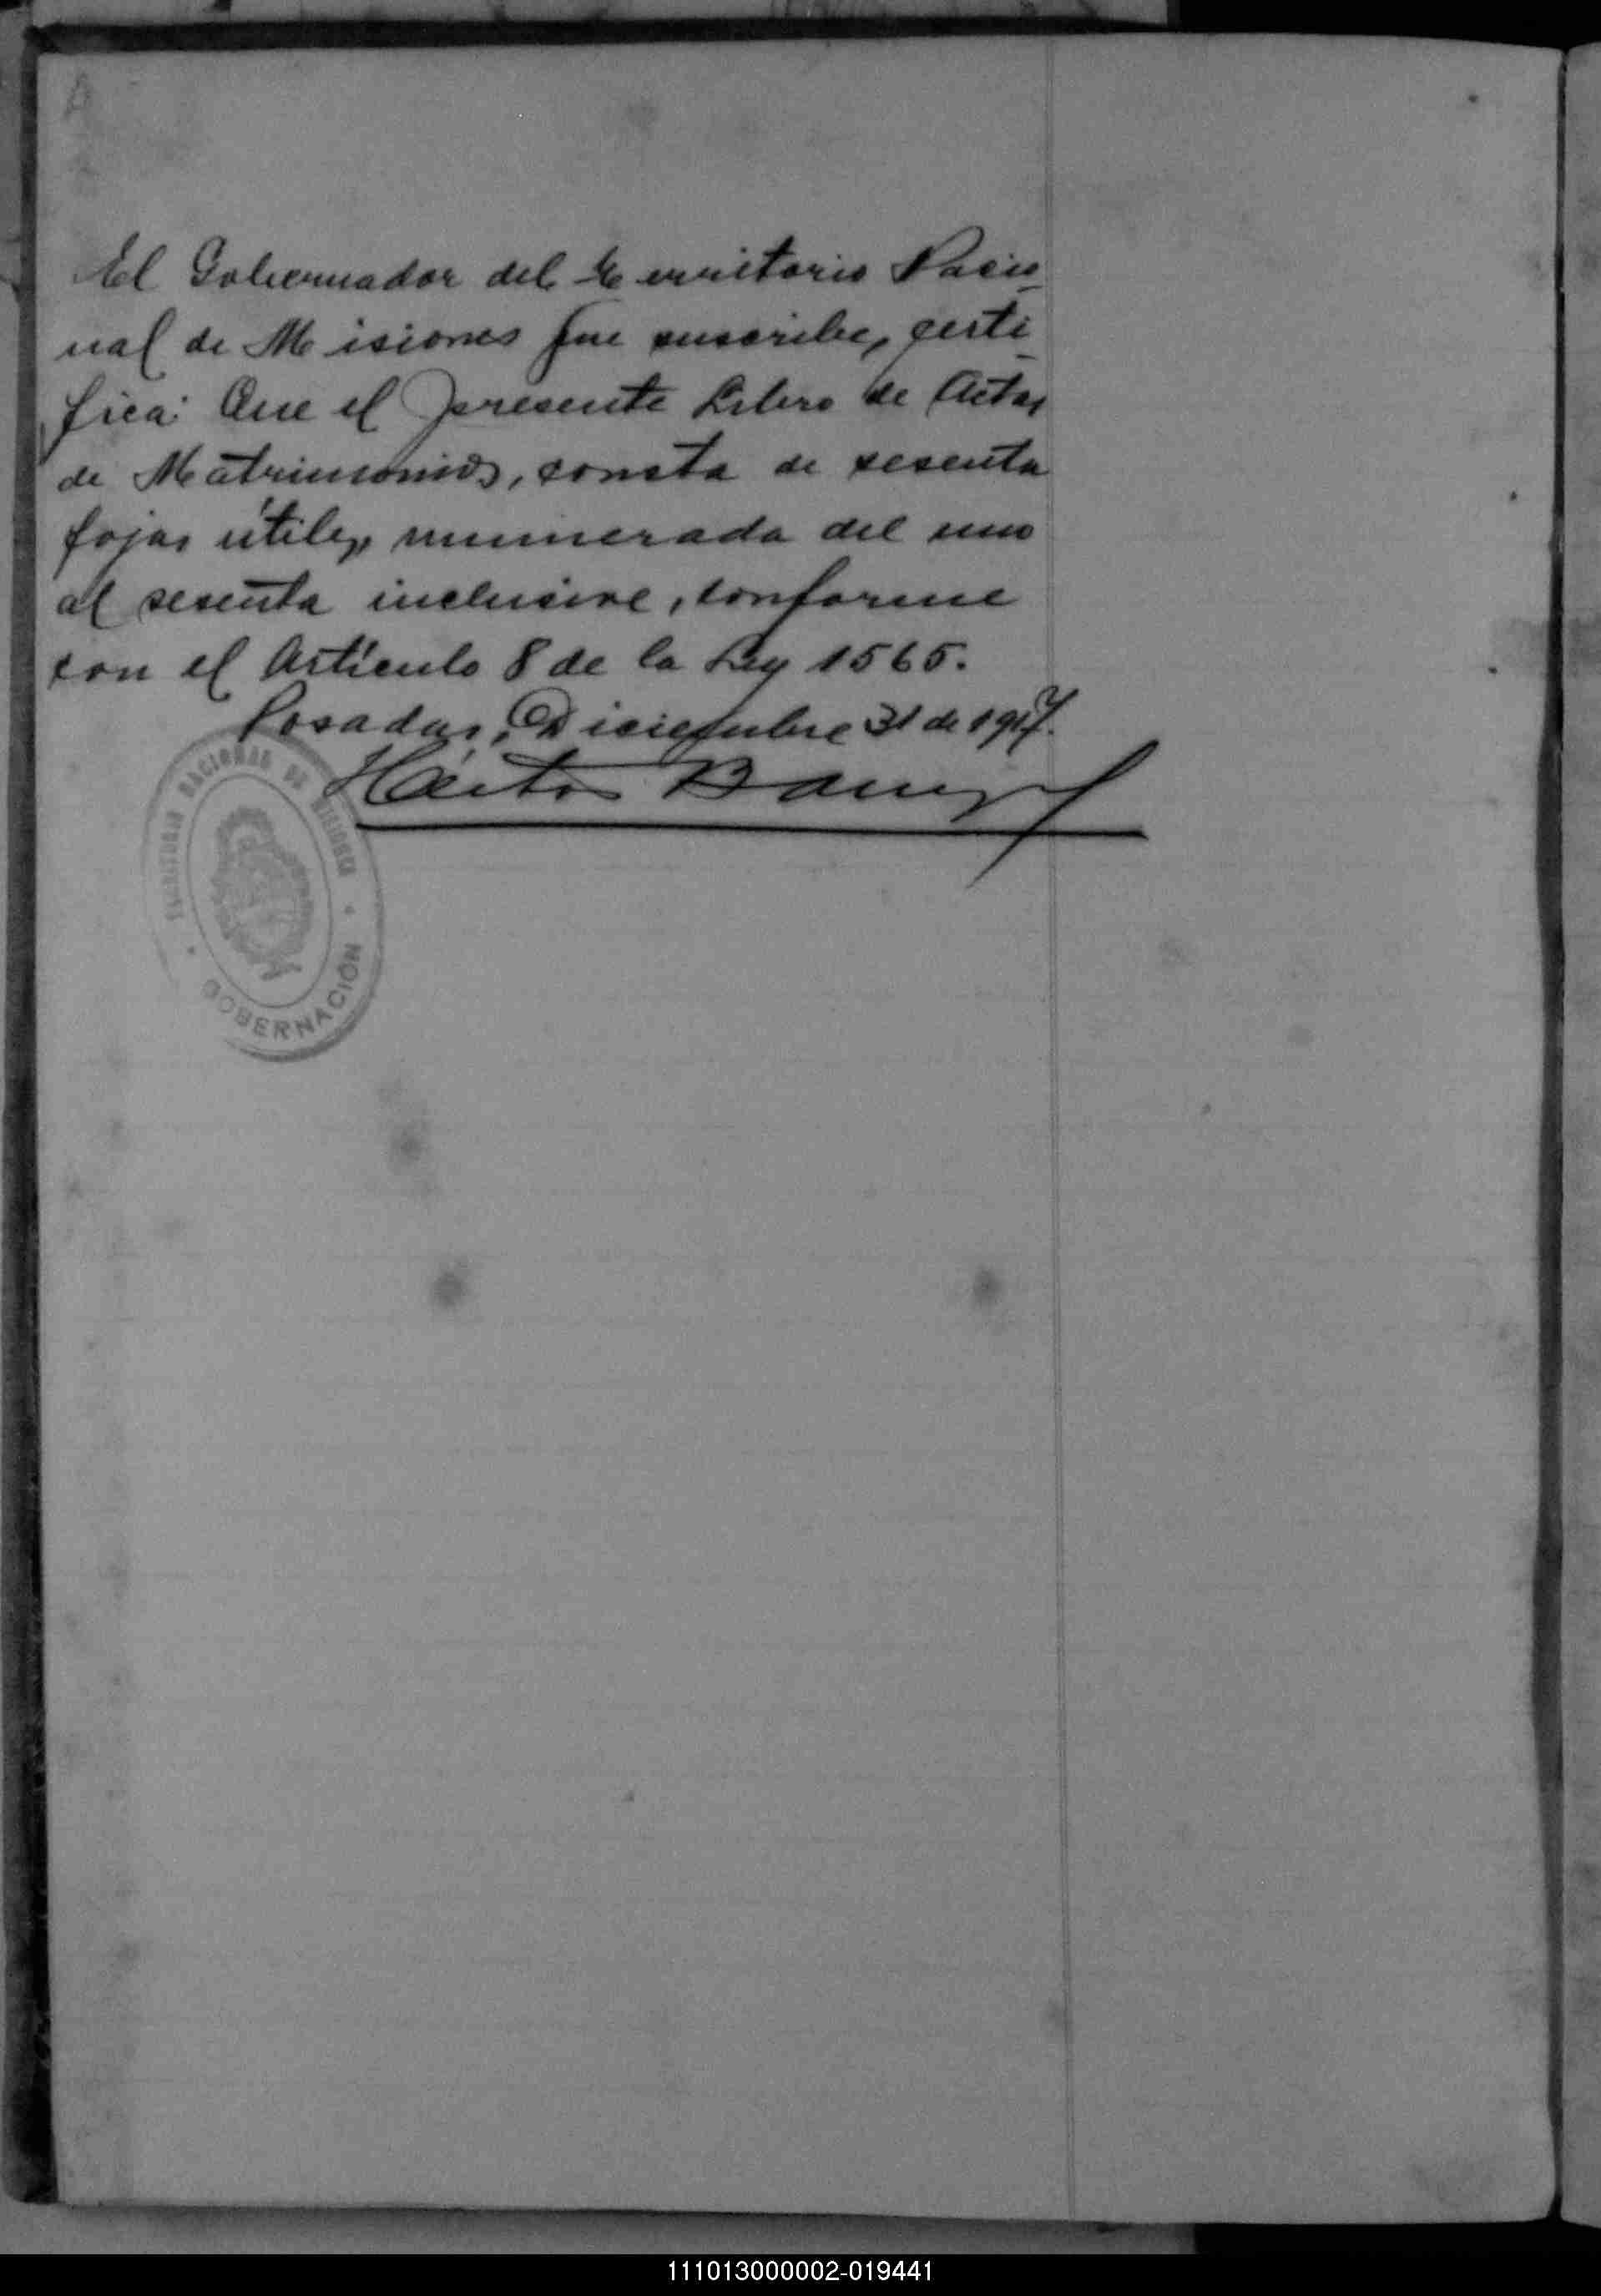 El Gobernador del Territorio Nacio
nal de Misiones que suscribe, certi
fica: Que el presente Libro de Actas
de Matrimonios, consta de sesenta
fojas útiles, numerada del uno
al sesenta inclusive, conforme
con el Artículo 8 de la Ley 1565.
Posadas, Diciembre 31 de 1917.
Héctor
TERRITORIO NACIONAL DE MISIONES
GOBERNACIÓN
111013000002-019441